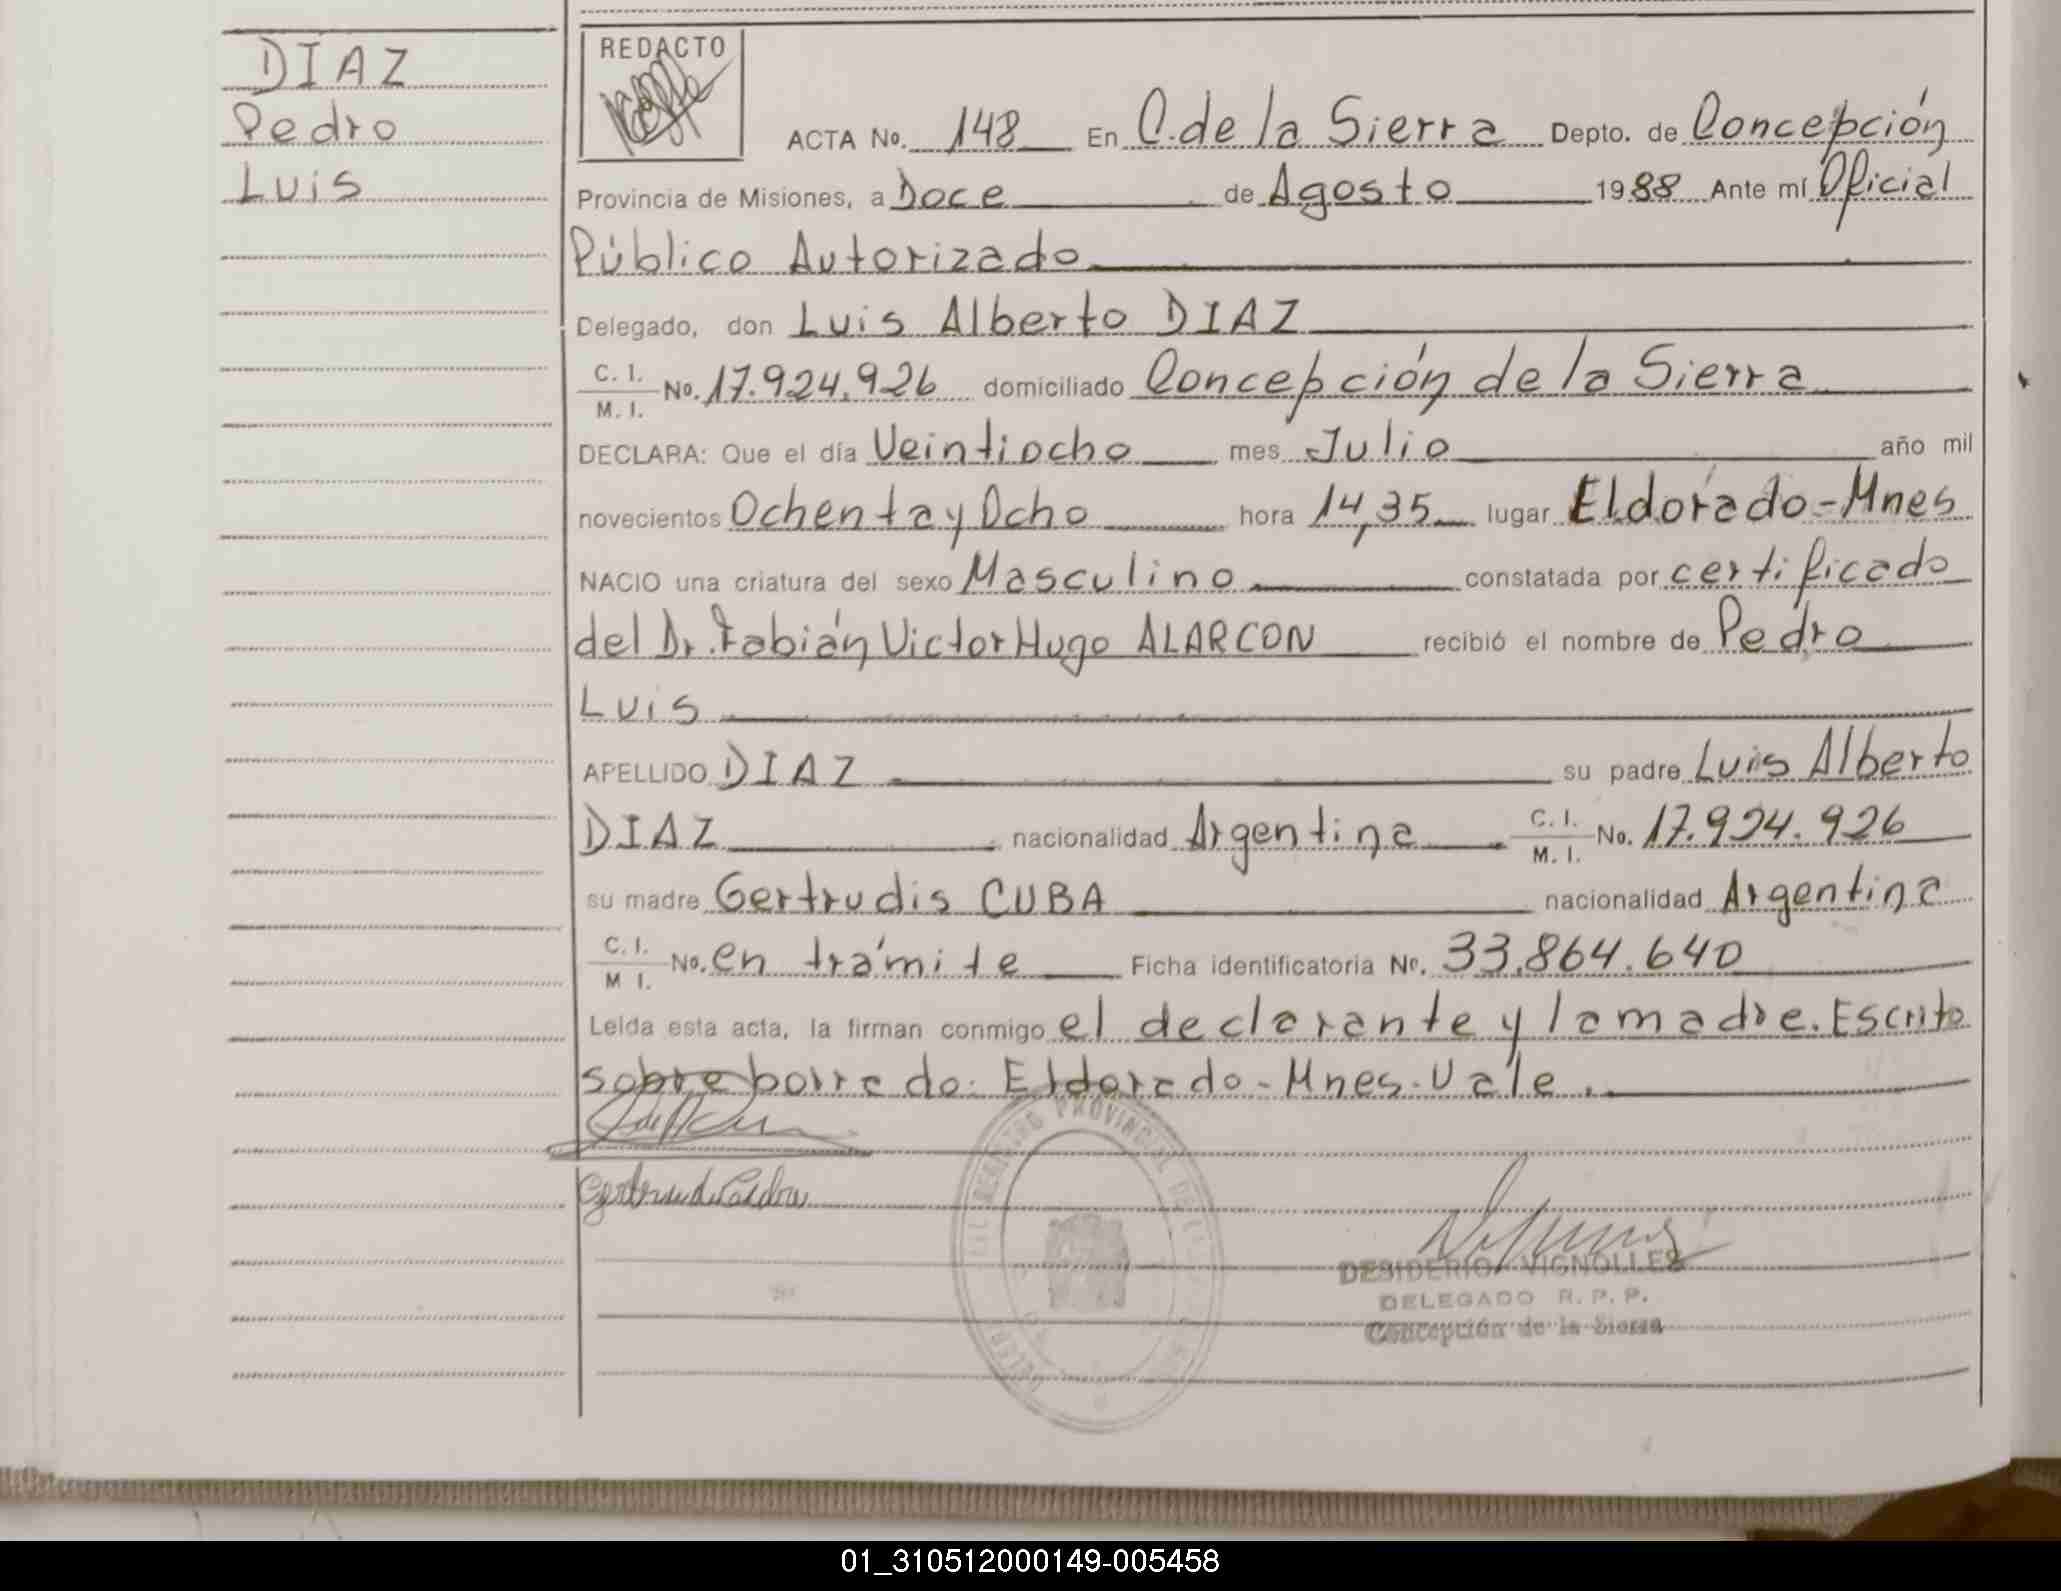 DIAZ
Pedro
Luis
REDACTO
ACTA No. 148 En C. de la Sierra Depto. de Concepción
Provincia de Misiones, a Doce de Agosto 1988 Ante mí Oficial
Público Autorizado
Delegado, don Luis Alberto DIAZ
C. I.
M. I. No. 17.924.926 domiciliado Concepción de la Sierra
DECLARA: Que el día Veintiocho mes Julio año mil
novecientos Ochenta y Ocho hora 14,35 lugar Eldorado-Mnes
NACIO una criatura del sexo Masculino constatada por certificado
del Dr. Fabián Victor Hugo ALARCON recibió el nombre de Pedro
Luis
APELLIDO DIAZ su padre Luis Alberto
DIAZ nacionalidad Argentina C. I. M. I. No. 17.924.926
su madre Gertrudis CUBA nacionalidad Argentina
C. I.
M I. No. en trámite Ficha identificatoria No. 33.864.640
Leída esta acta, la firman conmigo el declarante y la madre. Escrito
sobre borrado: Eldorado-Mnes. Vale.
REGISTRO PROVINCIAL DE
DESIDERIO VIGNOLLES
DELEGADO R. P. P.
Concepción de la Sierra
01_310512000149-005458